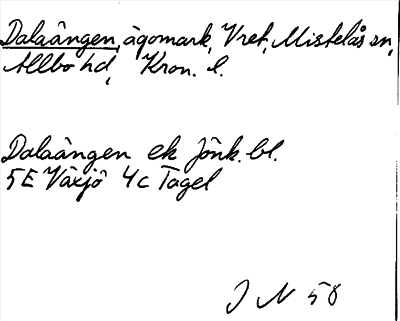 Dalaängen, ägomark, Vret, Mistelås sn,
Allbo hd, Kron. l.
Dalaängen ek Jönk. bl.
5E Växjö 4c Tagel
J N 58